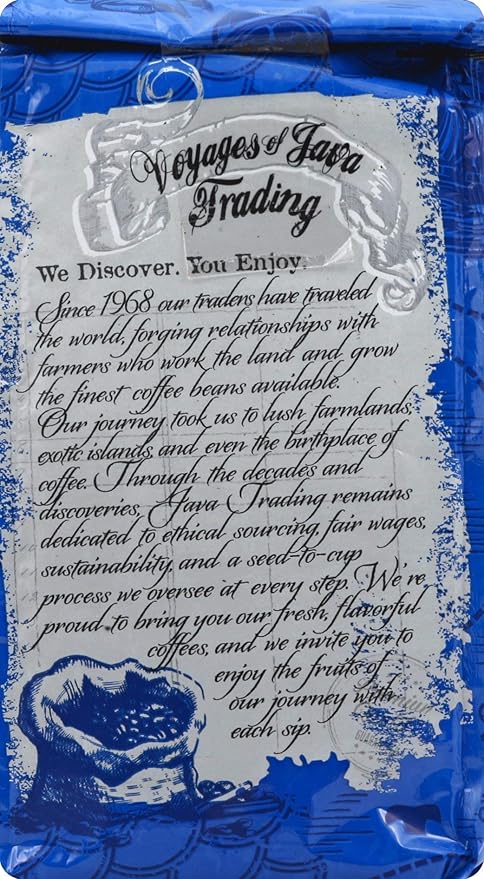 Voyages of Java
Trading
We Discover. You Enjoy.
Since 1968 our traders have traveled
the world, forging relationships with
farmers who work the land and grow
the finest coffee beans available.
Our journey took us to lush farmlands,
exotic islands, and even the birthplace of
coffee. Through the decades and
discoveries, Java Trading remains
dedicated to ethical sourcing, fair wages,
sustainability, and a seed-to-cup
process we oversee at every step. We're
proud to bring you our fresh, flavorful
coffees, and we invite you to
enjoy the fruits of
our journey with
each sip.